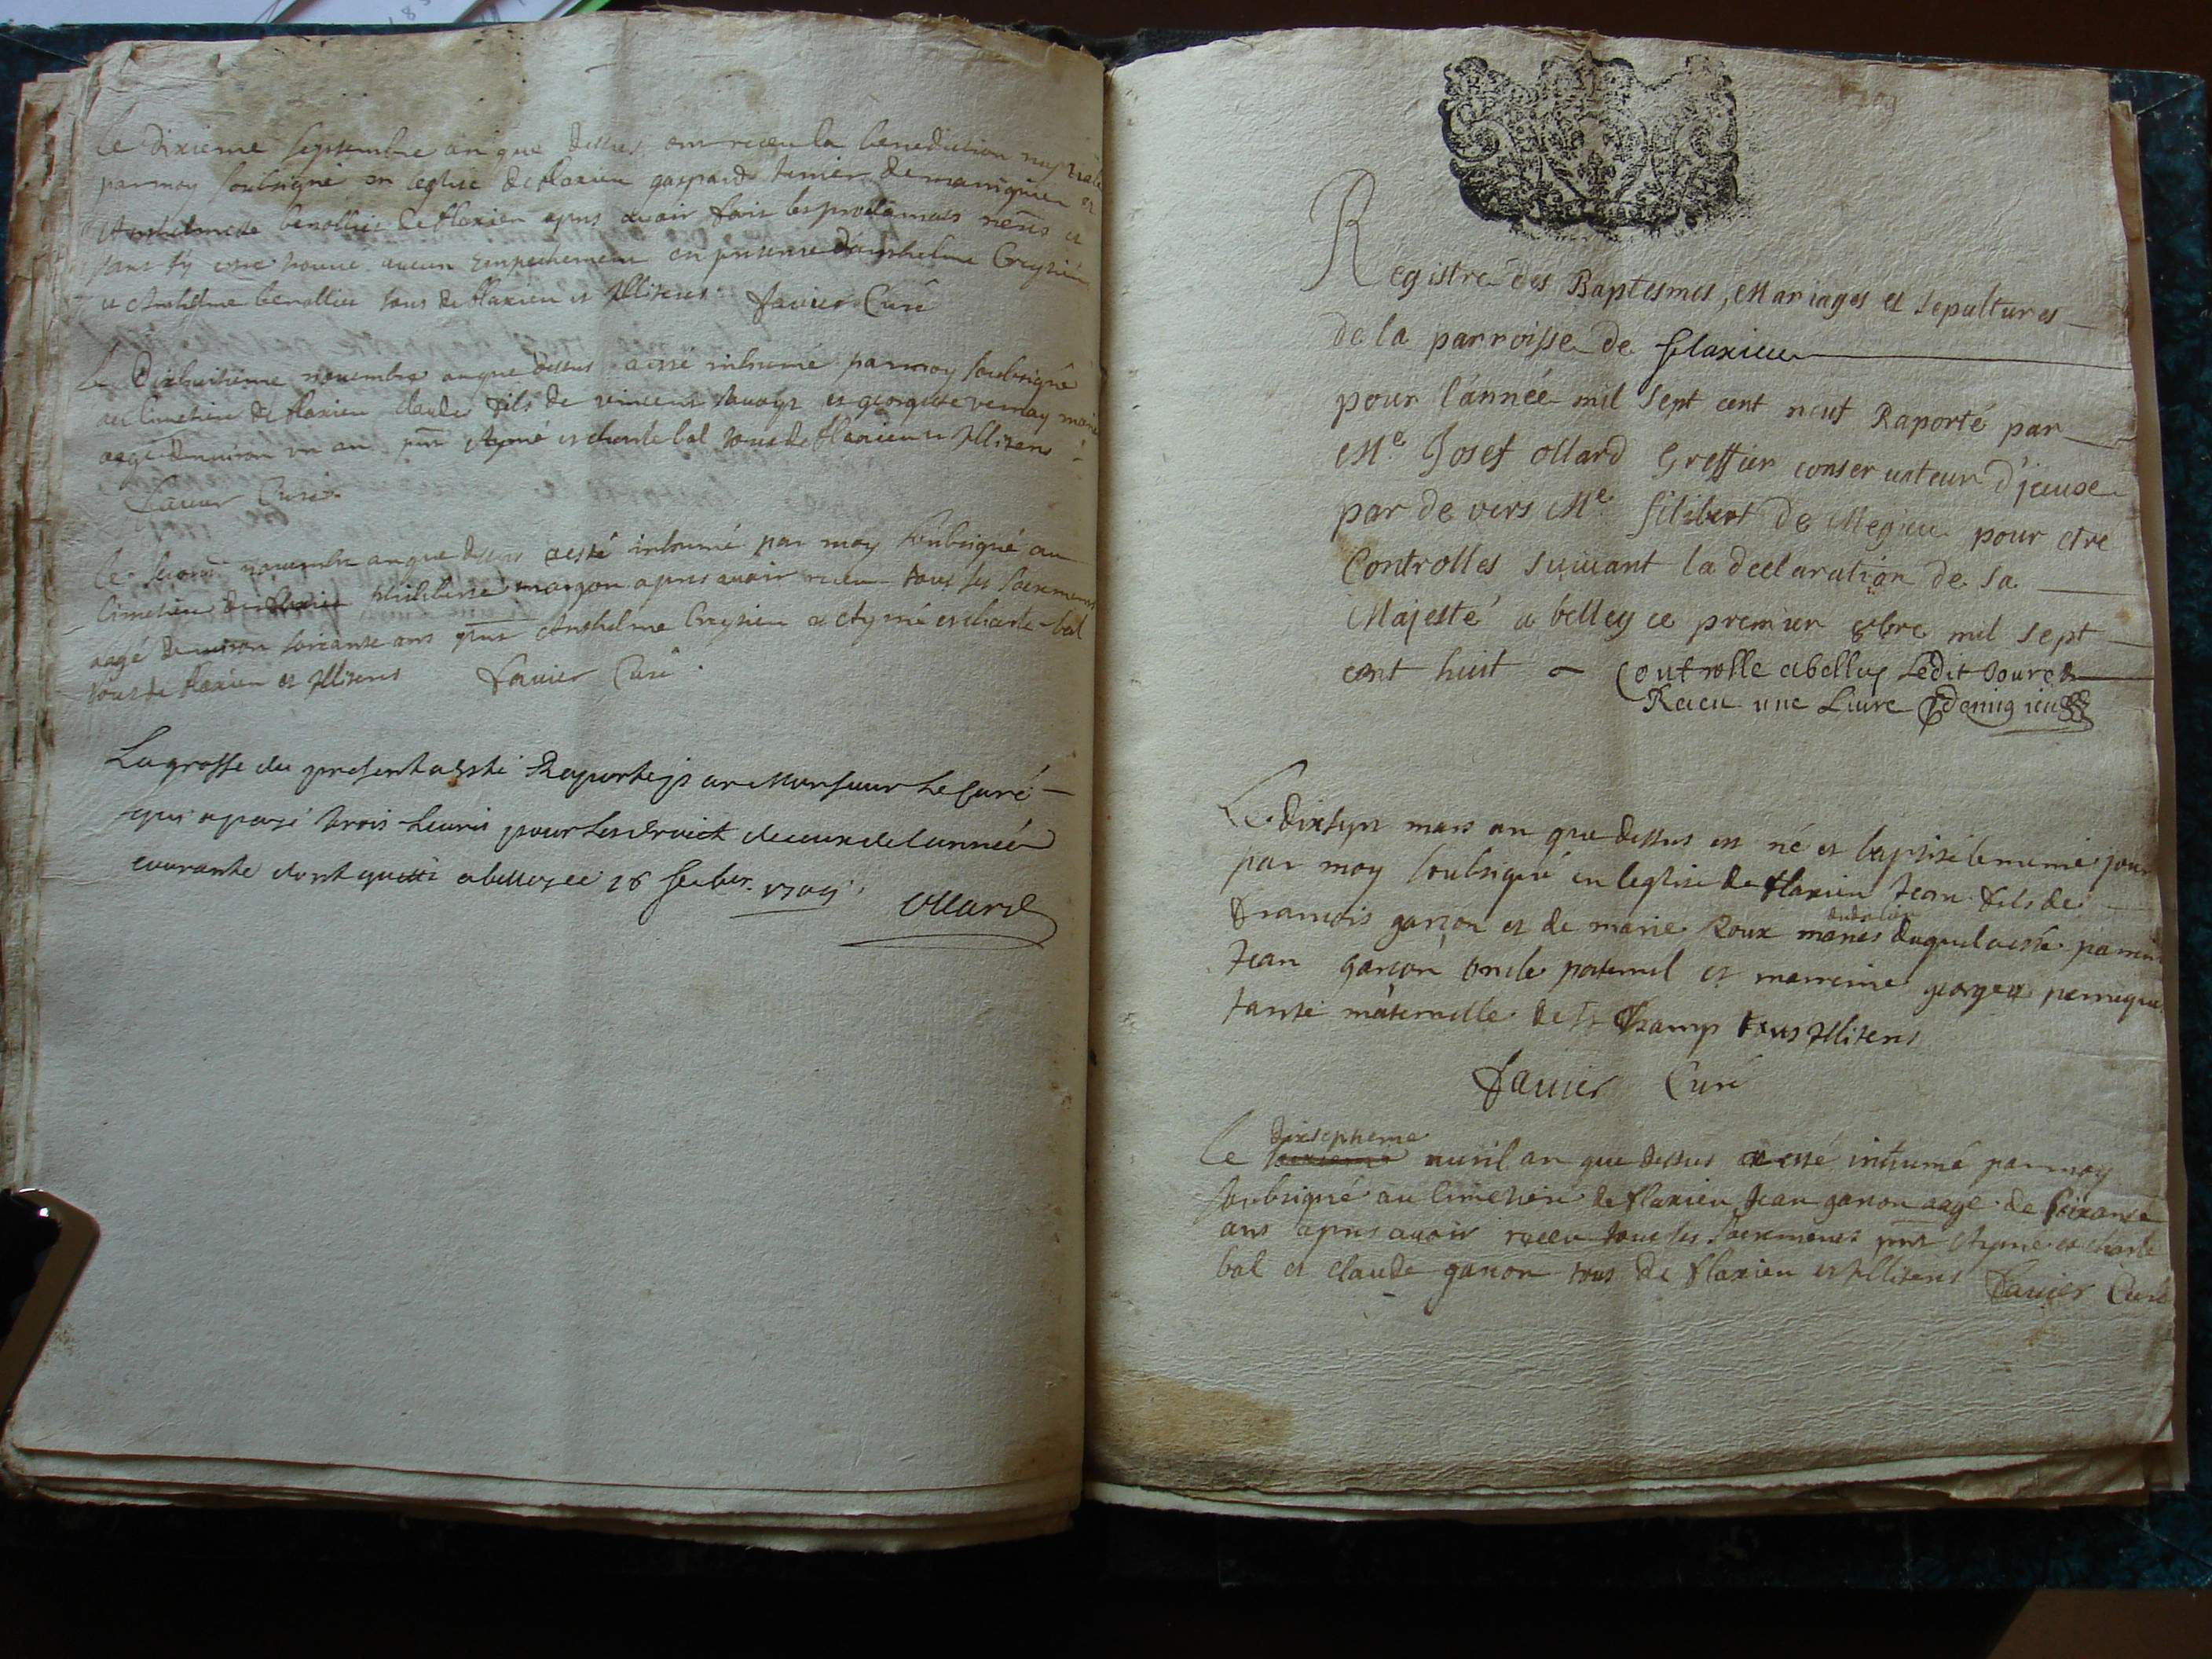 Le dixieme septembre an que dessus ont receu la benediction nuptiale
par moy soubsigné en leglise de flaxieu gaspard tenier de marignieu et
Anthelmete benollie de flaxieu apres avoir fait les proclamats et
sans sy estre trouue aucun empechement en presence d'anthelme Creysieu
et Anthelme benollie tous de flaxieu et Illiteres fauier Curé
Le Dixhuitieme nouembre an que dessus a esté inhumé par moy soubsigné
au Cimetiere de flaxieu claude fils de vincent et george vernay
aagé denuiron un an pnt Aymé et charle bal tous de flaxieu et Illiteres
fauier Curé
le second nouembre an que dessus a esté inhumé par moy soubsigné au
Cimetiere de flaxieu philiberte margon apres auoir receu tous les sacrements
aagé denuiron soixante ans pnt Anthelme Creysieu et Aymé et charle bal
tous de flaxieu et Illiteres fauier Curé
La grosse du present a esté Raporté par Monsieur Le Curé
qui a payé trois Liures pour Les droict de ceux de Lannée
courante dont quitté a belley ce 28 1709
Ollard
Registre des Baptesmes, Mariages et sepultures
de la parroisse de flaxieu
pour l'année mil sept cent neuf Raporté par
Me Josef ollard Greffier conseruateur d'jceuse
par de vers Me filibert de Megieu pour etre
Controlles suiuant la declaration de sa
Majesté a belley ce premier 8bre mil sept
cent huit Controlle abelley Ledit Jour
Receu une Liure Demigieu
Le dixsept mars an que dessus est né et baptisé le meme jour
par moy soubsigné en leglise de flaxieu Jean fils de
francois garçon et de marie Roux mariés duquel a esté parrain
Jean garçon oncle paternel et marreine george perruque
tante maternelle de champ tous Illiteres
fauier Curé
dixseptieme
le auril an que dessus a esté inhumé par moy
soubsigné au Cimetiere de flaxieu Jean garçon aagé de soixante
ans apres auoir receu tous les sacrements pnt Ayme et charle
bal et claude garçon tous de flaxieu et Illiteres fauier Curé